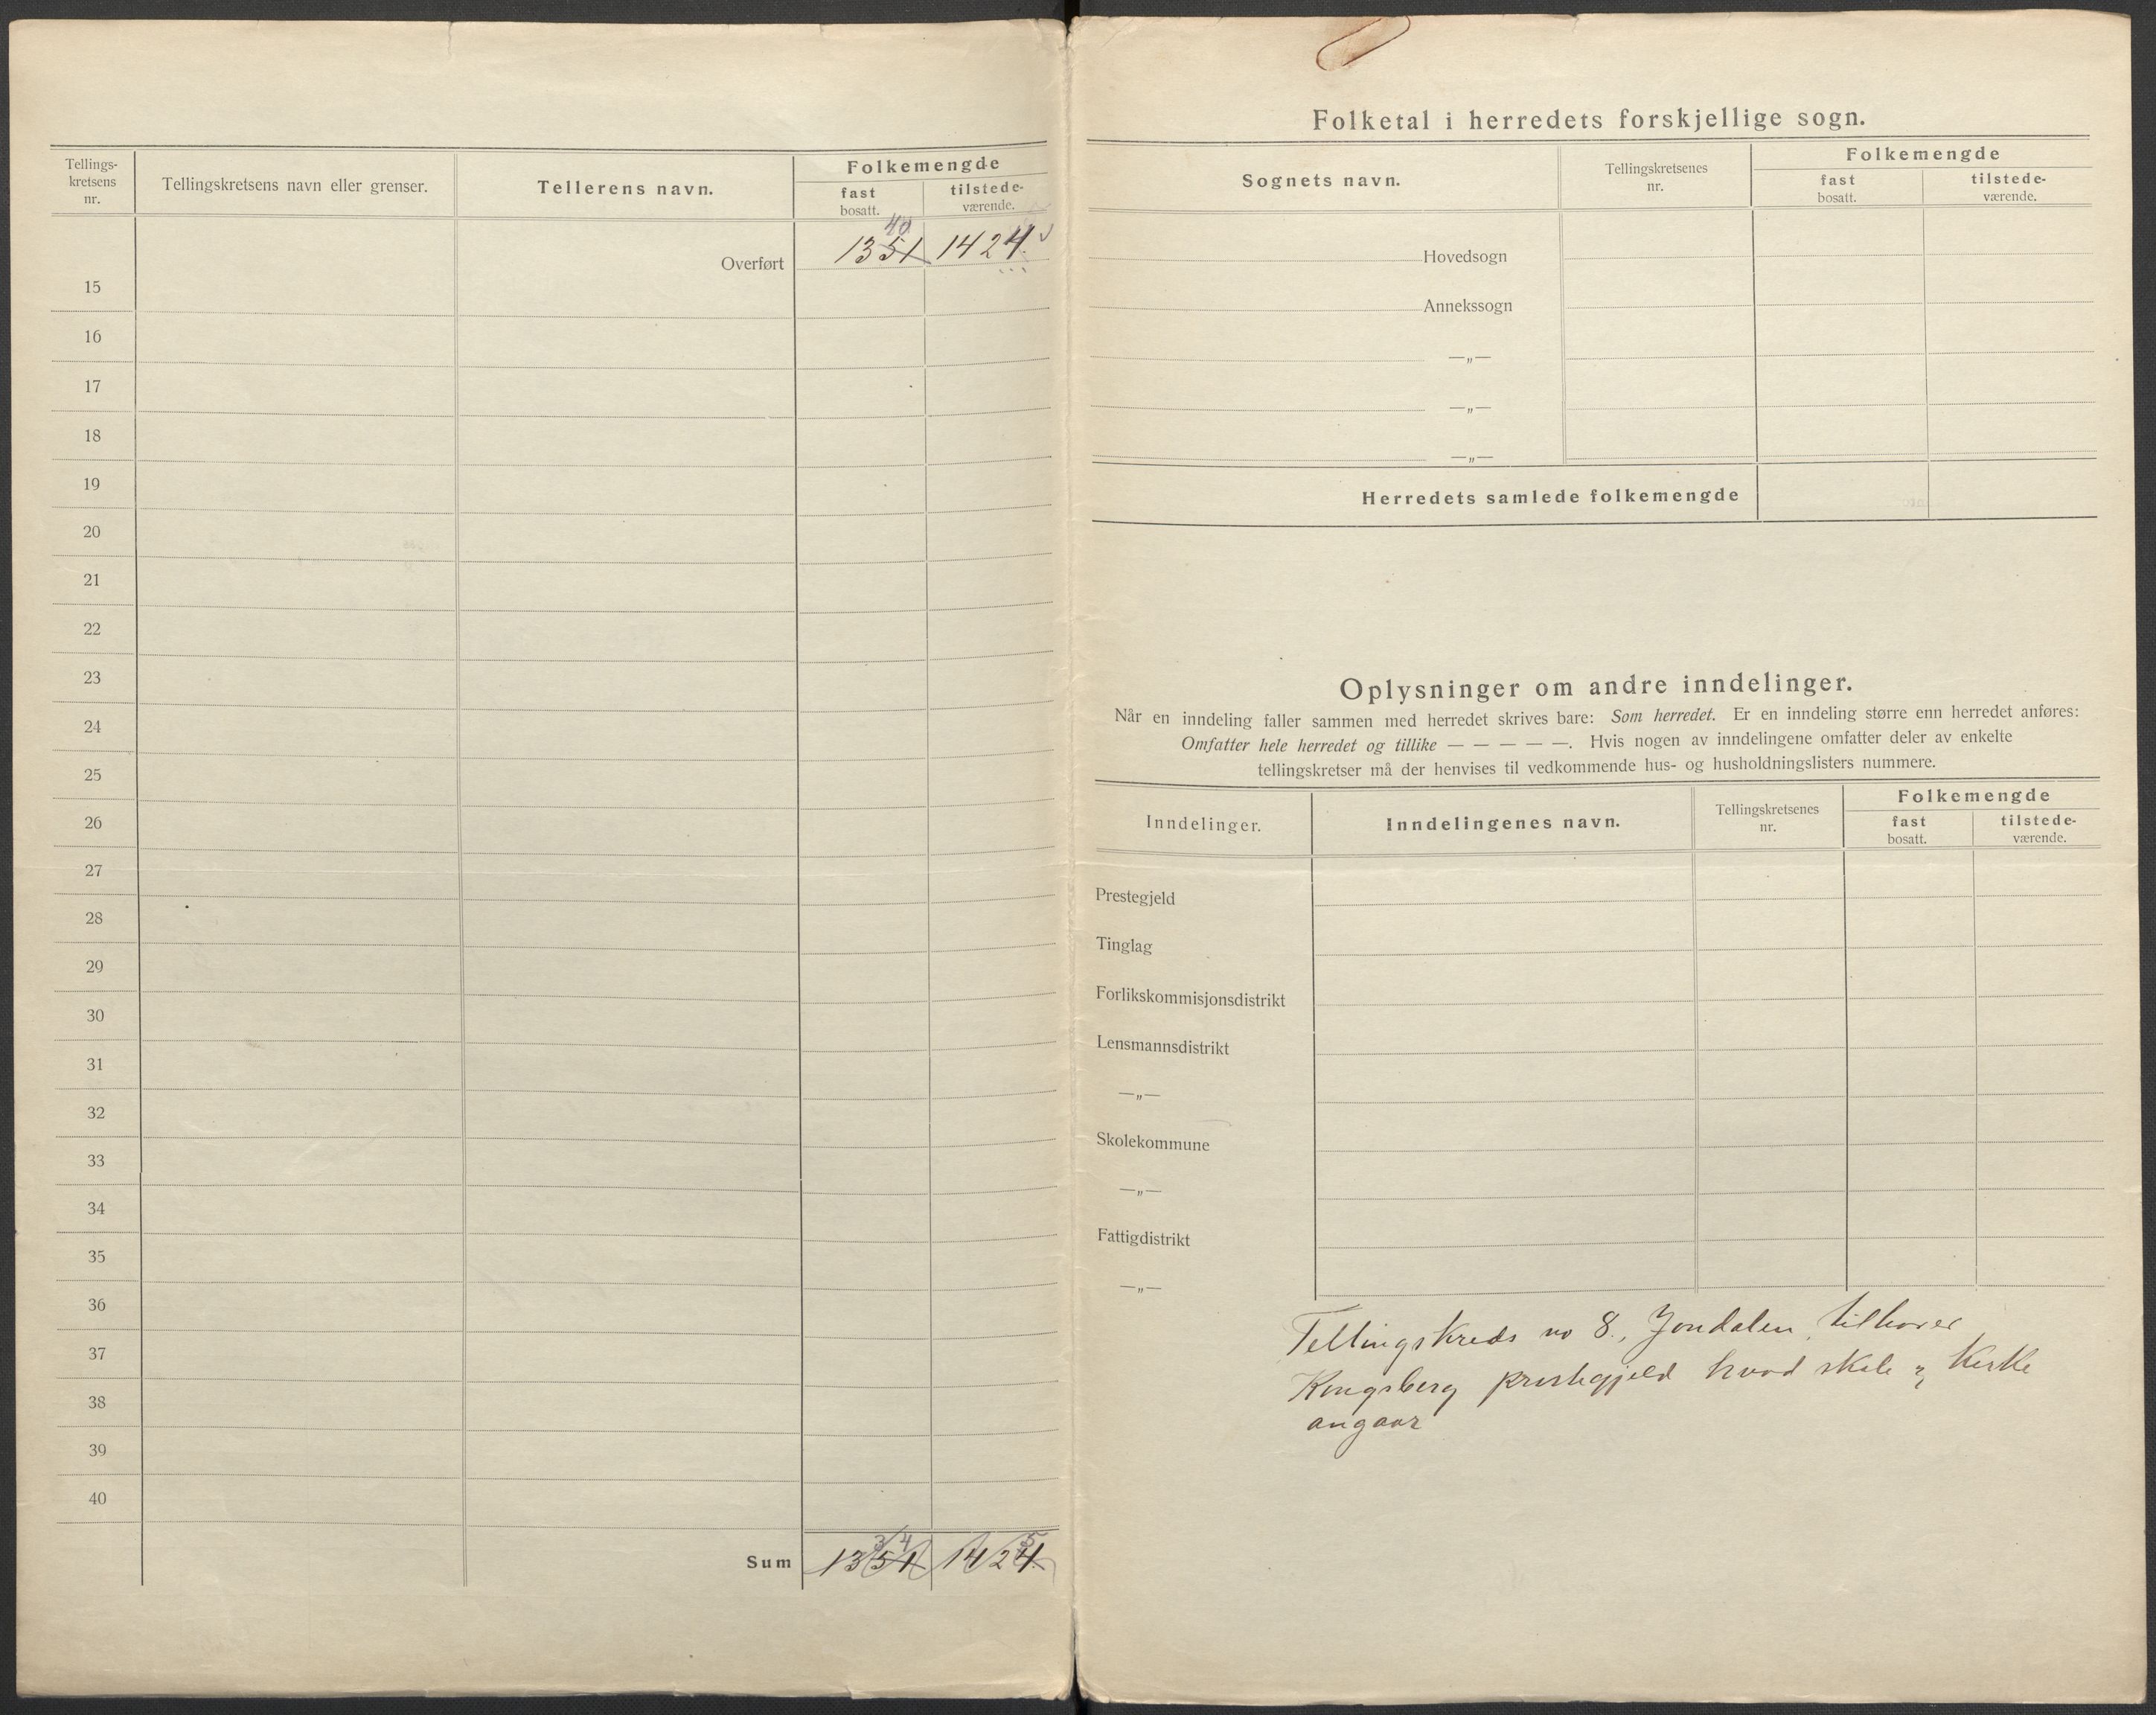 Tellings-
kretsens
nr.
Tellingskretsens navn eller grenser.
Tellerens navn.
Folkemengde
fast
bosatt.
tilstede-
værende.
40
Overført 1351 1424
15
16
17
18
19
20
21
22
23
24
25
26
27
28
29
30
31
32
33
34
35
36
37
38
39
40
3 4 5
Sum 1351 1424
Folketal i herredets forskjellige sogn.
Sognets navn.
Tellingskretsenes
nr.
Folkemengde
fast
bosatt.
tilstede-
værende.
Hovedsogn
Annekssogn
—„—
—„—
—„—
Herredets samlede folkemengde
Oplysninger om andre inndelinger.
Når en inndeling faller sammen med herredet skrives bare: Som herredet. Er en inndeling større enn herredet anføres:
Omfatter hele herredet og tillike — — — — —. Hvis nogen av inndelingene omfatter deler av enkelte
tellingskretser må der henvises til vedkommende hus- og husholdningslisters nummere.
Inndelinger.
Inndelingenes navn.
Tellingskretsenes
nr.
Folkemengde
fast
bosatt.
tilstede-
værende.
Prestegjeld
Tinglag
Forlikskommisjonsdistrikt
Lensmannsdistrikt
—„—
Skolekommune
—„—
Fattigdistrikt
—„—
Tellingskreds no 8., Jondalen, tilhører
Kongsberg prestegjeld hvad skole & kirke
angaar